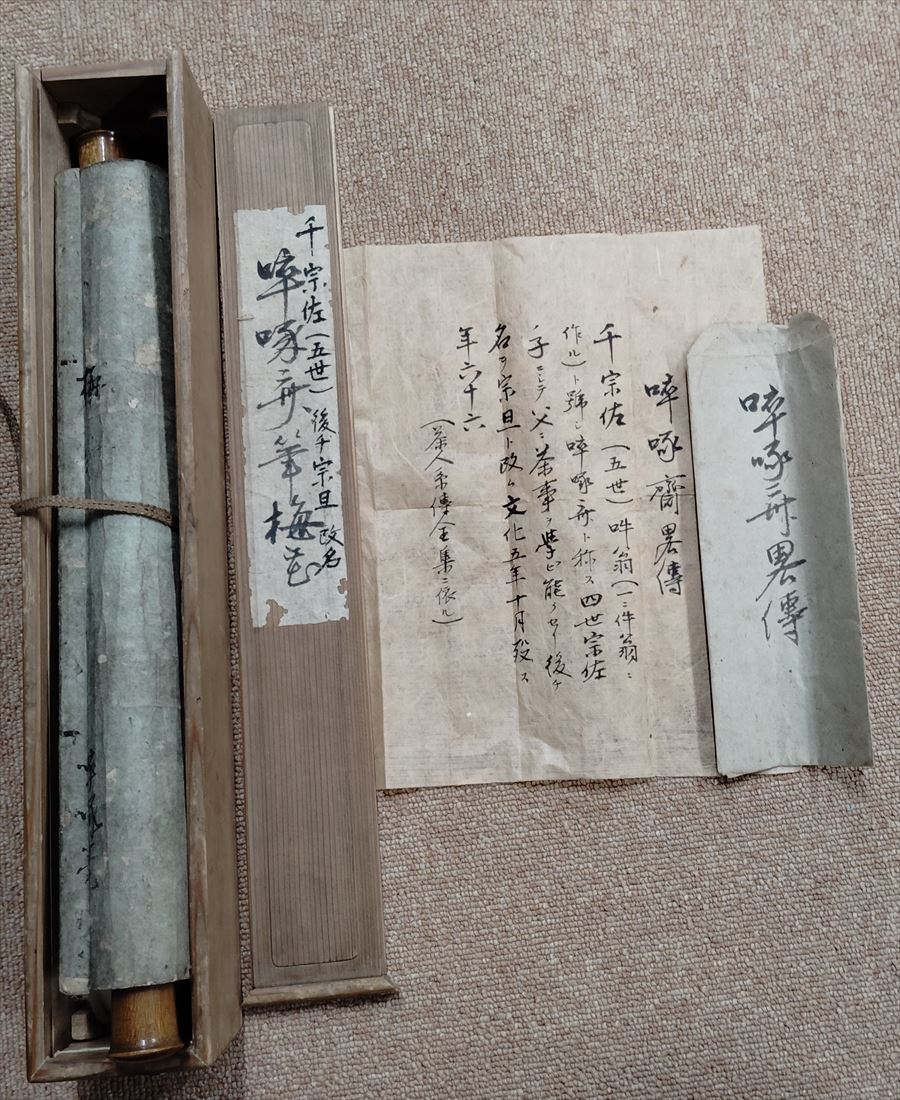 啐啄斎畧傳
啐啄齋畧傳
千宗佐(五世)吽翁(一ニ件翁ニ
作ル)ト號シ啐啄斎ト称ス四世宗佐
ノ子ニシテ父ニ茶事ヲ学ヒ能クセリ後チ
名ヲ宗旦ト改ム文化五年十月歿ス
年六十六
(茶人系傳全集ニ依ル)
千宗佐(五世)後チ宗旦改名
啐啄斎筆梅花
梅
啐啄筆